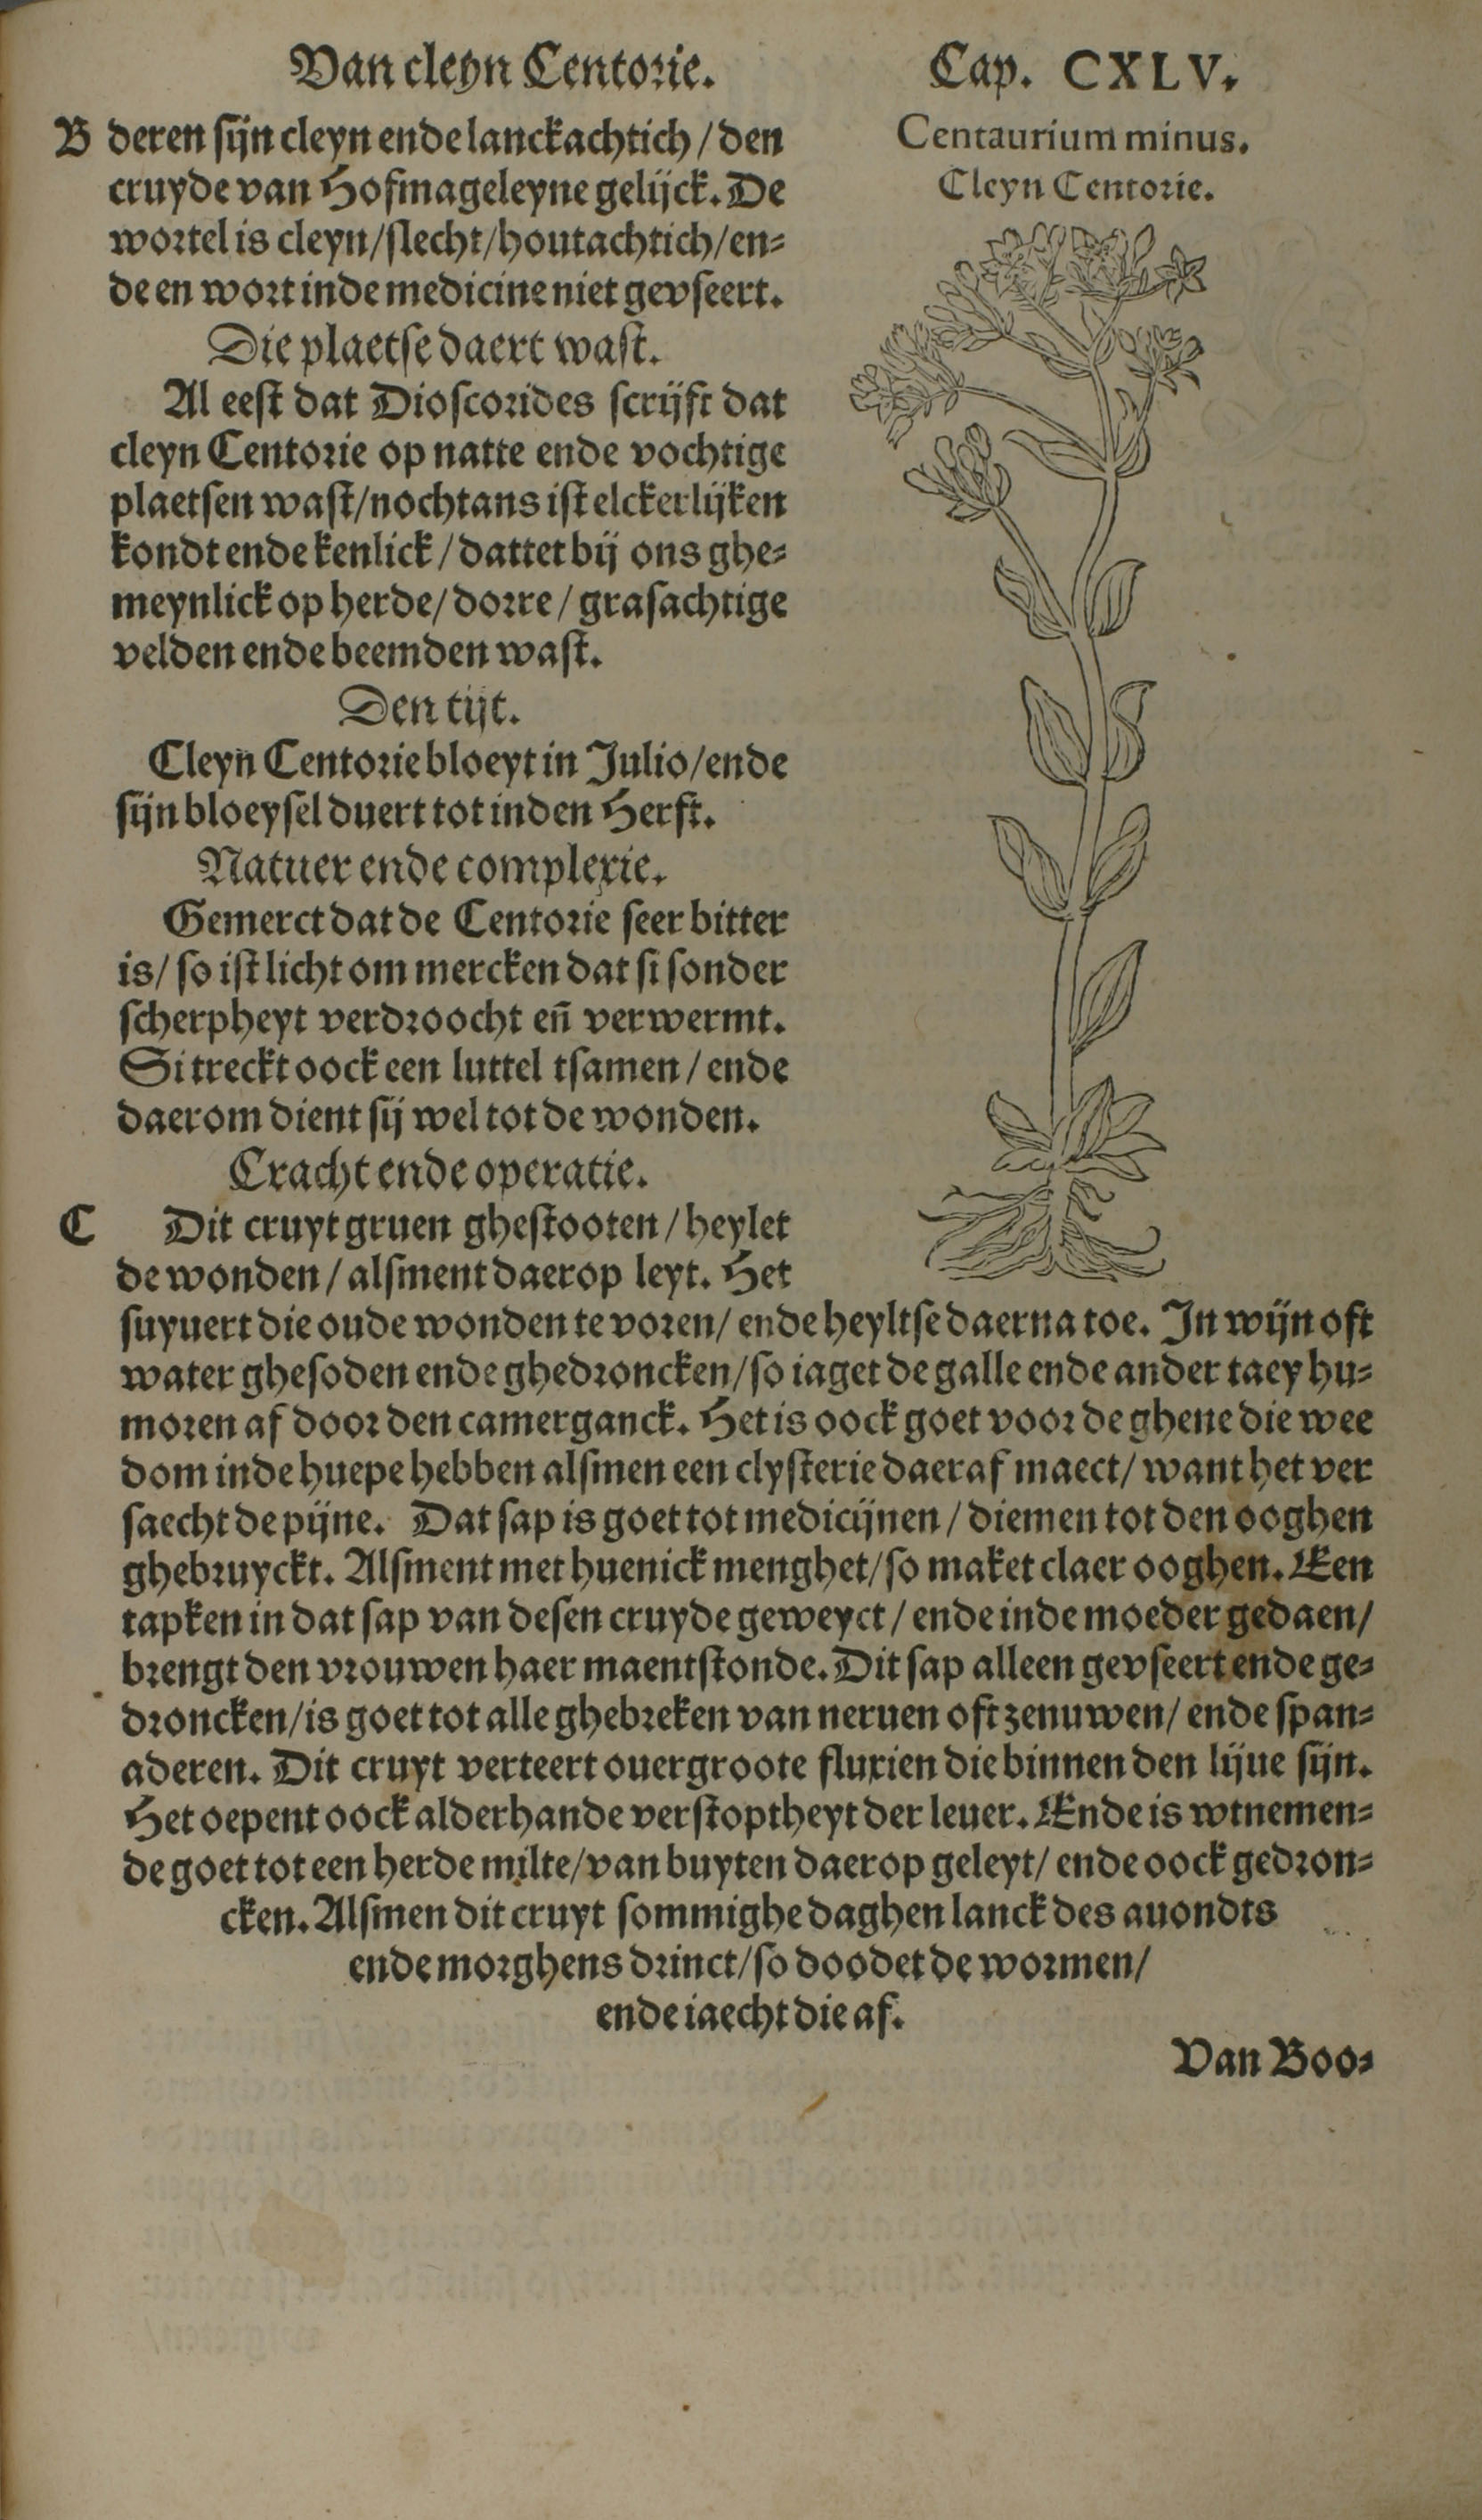 Van cleyn Centorie. Cap. CXLV.
B deren sijn cleyn ende lanckachtich / den
cruyde van Hofmageleyne gelijck. De
wortel is cleyn/slecht/houtachtich/en-
de en wort inde medicine niet gevseert.
Die plaetse daert wast.
Al eest dat Dioscorides scrijft dat
cleyn Centorie op natte ende vochtige
plaetsen wast/nochtans ist elckerlijken
kondt ende kenlick / dattet bij ons ghe-
meynlick op herde/ dorre / grasachtige
velden ende beemden wast.
Den tijt.
Cleyn Centorie bloeyt in Julio/ende
sijn bloeysel duert tot inden Herfst.
Natuer ende complexie.
Gemerct dat de Centorie seer bitter
is/ so ist licht om mercken dat si sonder
scherpheyt verdroocht eñ verwermt.
Si treckt oock een luttel tsamen / ende
daerom dient sij wel tot de wonden.
Cracht ende operatie.
C Dit cruyt gruen ghestooten / heylet
de wonden / alsment daerop leyt. Het
Centaurium minus.
Cleyn Centorie.
suyuert die oude wonden te voren/ ende heyltse daerna toe. In wijn oft
water ghesoden ende ghedroncken/so iaget de galle ende ander taey hu-
moren af door den camerganck. Het is oock goet voor de ghene die wee
dom inde huepe hebben alsmen een clysterie daeraf maect/ want het ver
saecht de pijne. Dat sap is goet tot medicijnen / diemen tot den ooghen
ghebruyckt. Alsment met huenick menghet/so maket claer ooghen. Een
tapken in dat sap van desen cruyde geweyct / ende inde moeder gedaen/
brengt den vrouwen haer maentstonde. Dit sap alleen gevseert ende ge-
droncken/is goet tot alle ghebreken van neruen oft zenuwen/ ende span-
aderen. Dit cruyt verteert ouergroote fluxien die binnen den lijue sijn.
Het oepent oock alderhande verstoptheyt der leuer. Ende is wtnemen-
de goet tot een herde milte/van buyten daerop geleyt/ ende oock gedron-
cken. Alsmen dit cruyt sommighe daghen lanck des auondts
ende morghens drinct/so doodet de wormen/
ende iaecht die af.
Van Boo-